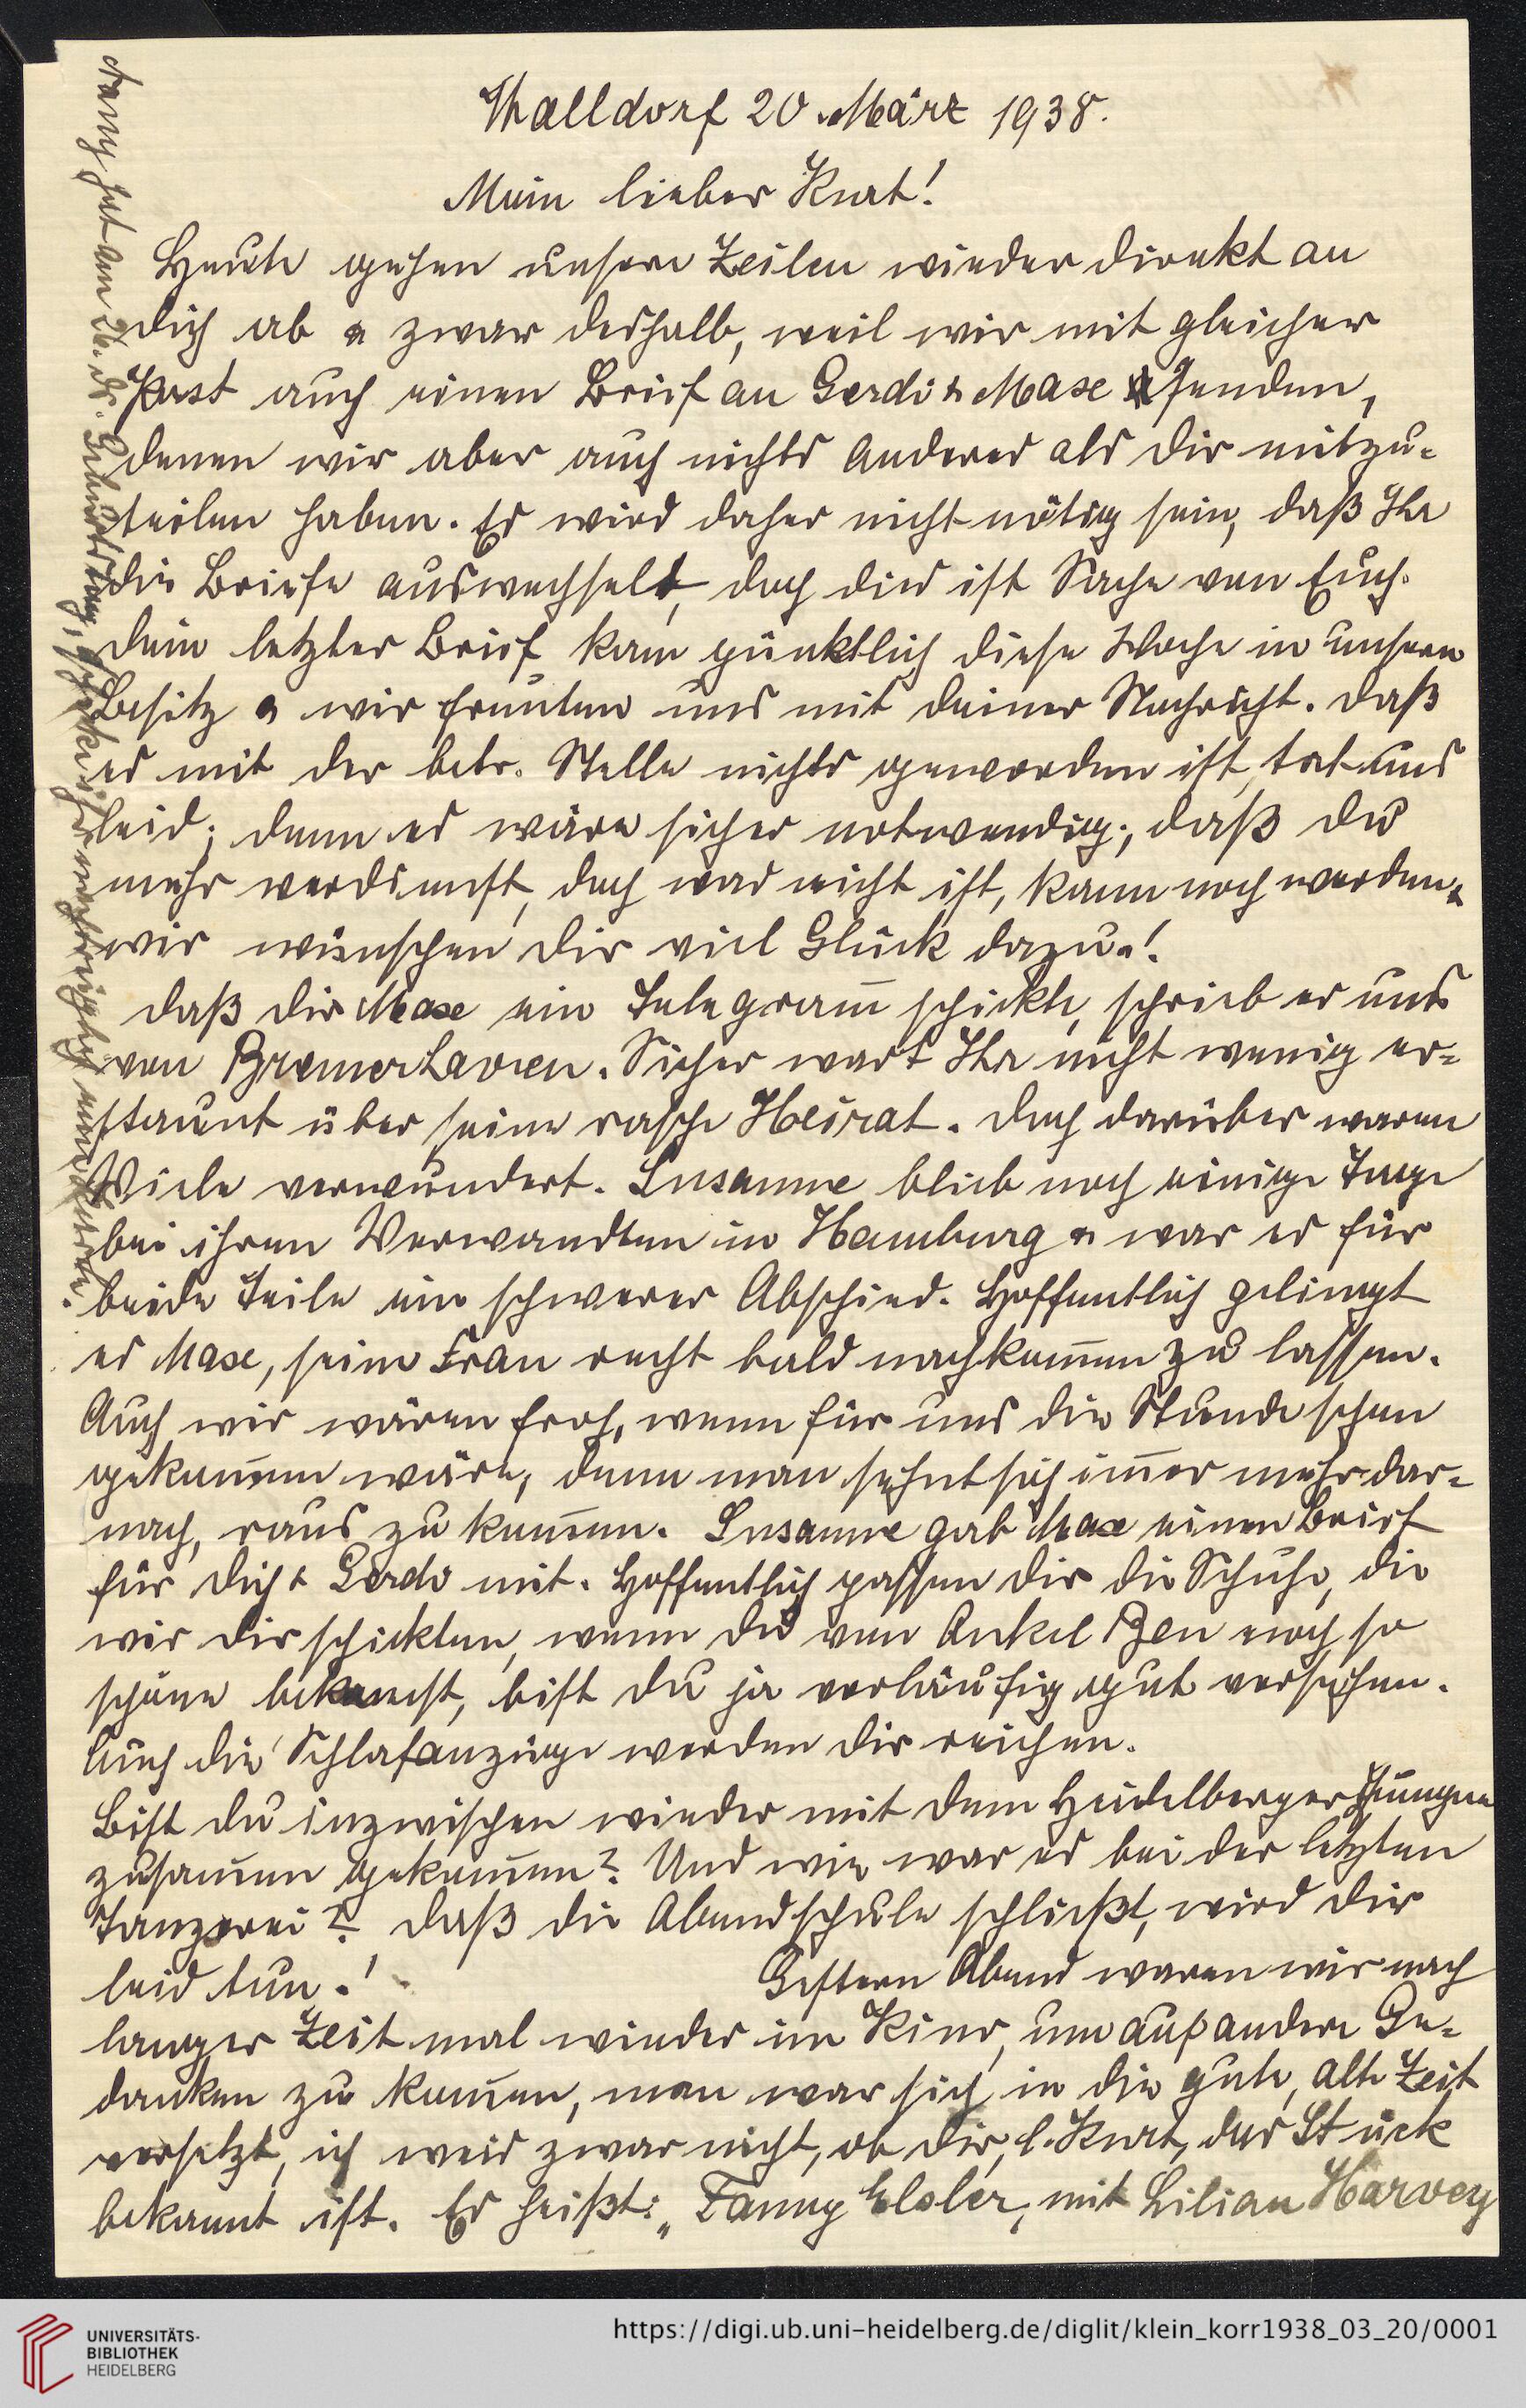 Walldorf 20. März 1938.
Mein lieber Kurt!
Heute gehen unsere Zeilen wieder direkt an
dich ab & zwar deshalb, weil wir mit gleicher
Post auch einen Brief an Gerdi & Max senden,
denen wir aber auch nichts Anderes als dir mitzu-
teilen haben. Es wird daher nicht nötig sein, daß Ihr
die Briefe auswechselt, doch dies ist Sache von Euch.
Dein letzter Brief kam pünktlich diese Woche in unsern
Besitz & wir freuten uns mit deiner Nachricht. Daß
es mit der betr. Stelle nichts geworden ist, tat uns
leid; denn es wäre sicher notwendig, daß du
mehr verdienst, doch was nicht ist, kann noch werden &
wir wünschen dir viel Glück dazu!
Daß dir Max ein Telegram̅ schickte, schrieb er uns
von Bremerhaven. Sicher wart Ihr nicht wenig er-
staunt über seine rasche Heirat. Doch darüber waren
Viele verwundert. Susanne blieb noch einige Tage
bei ihren Verwandten in Hamburg & war es für
beide Teile ein schwerer Abschied. Hoffentlich gelingt
es Max, seine Frau recht bald nachkom̅en zu lassen.
Auch wir wären froh, wenn für uns die Stunde schon
gekom̅en wäre, denn man sehnt sich im̅er mehr dar-
nach, raus zu kom̅en. Susanne gab Max einen Brief
für dich & Gerdi mit. Hoffentlich passen dir die Schuhe, die
wir dir schickten, wenn du von Onkel Ben noch so
schöne bekamst, bist du ja vorläufig gut versehen.
Auch die Schlafanzüge werden dir reichen.
Bist du inzwischen wieder mit dem Heidelberger Jungen
zusam̅en gekom̅en? Und wie war es bei der letzten
Tanzerei? Daß die Abendschule schließt, wird dir
leid tun.! Gestern Abend waren wir nach
langer Zeit mal wieder im Kino, um auf andere Ge-
danken zu kom̅en, man war sich in die gute, alte Zeit
versetzt, ich weis zwar nicht, ob dir, l. Kurt, das Stück
bekannt ist. Es heißt: „Fanny Elsler, mit Lilian Harvey
hat am 26. ds. Geburtstag,
UNIVERSITÄTS-
BIBLIOTHEK
HEIDELBERG
https://digi.ub.uni-heidelberg.de/diglit/klein_korr1938_03_20/0001